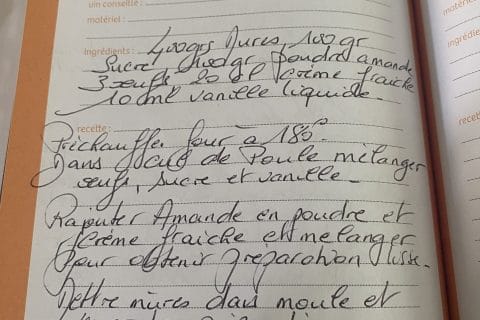 vin conseillé :
matériel :
Ingrédients : 400grs Mures, 100gr
Sucre 100gr poudre amande
3 œufs 20 cl crème fraiche
10 ml vanille liquide.
recette :
Préchauffer four à 180°.
Dans de Poule mélanger
œufs, sucre et vanille.
Rajouter Amande en poudre et
crème fraiche et mélanger
Pour obtenir préparation lisse.
Mettre mures dans moule et
matériel
ingrédie
recette